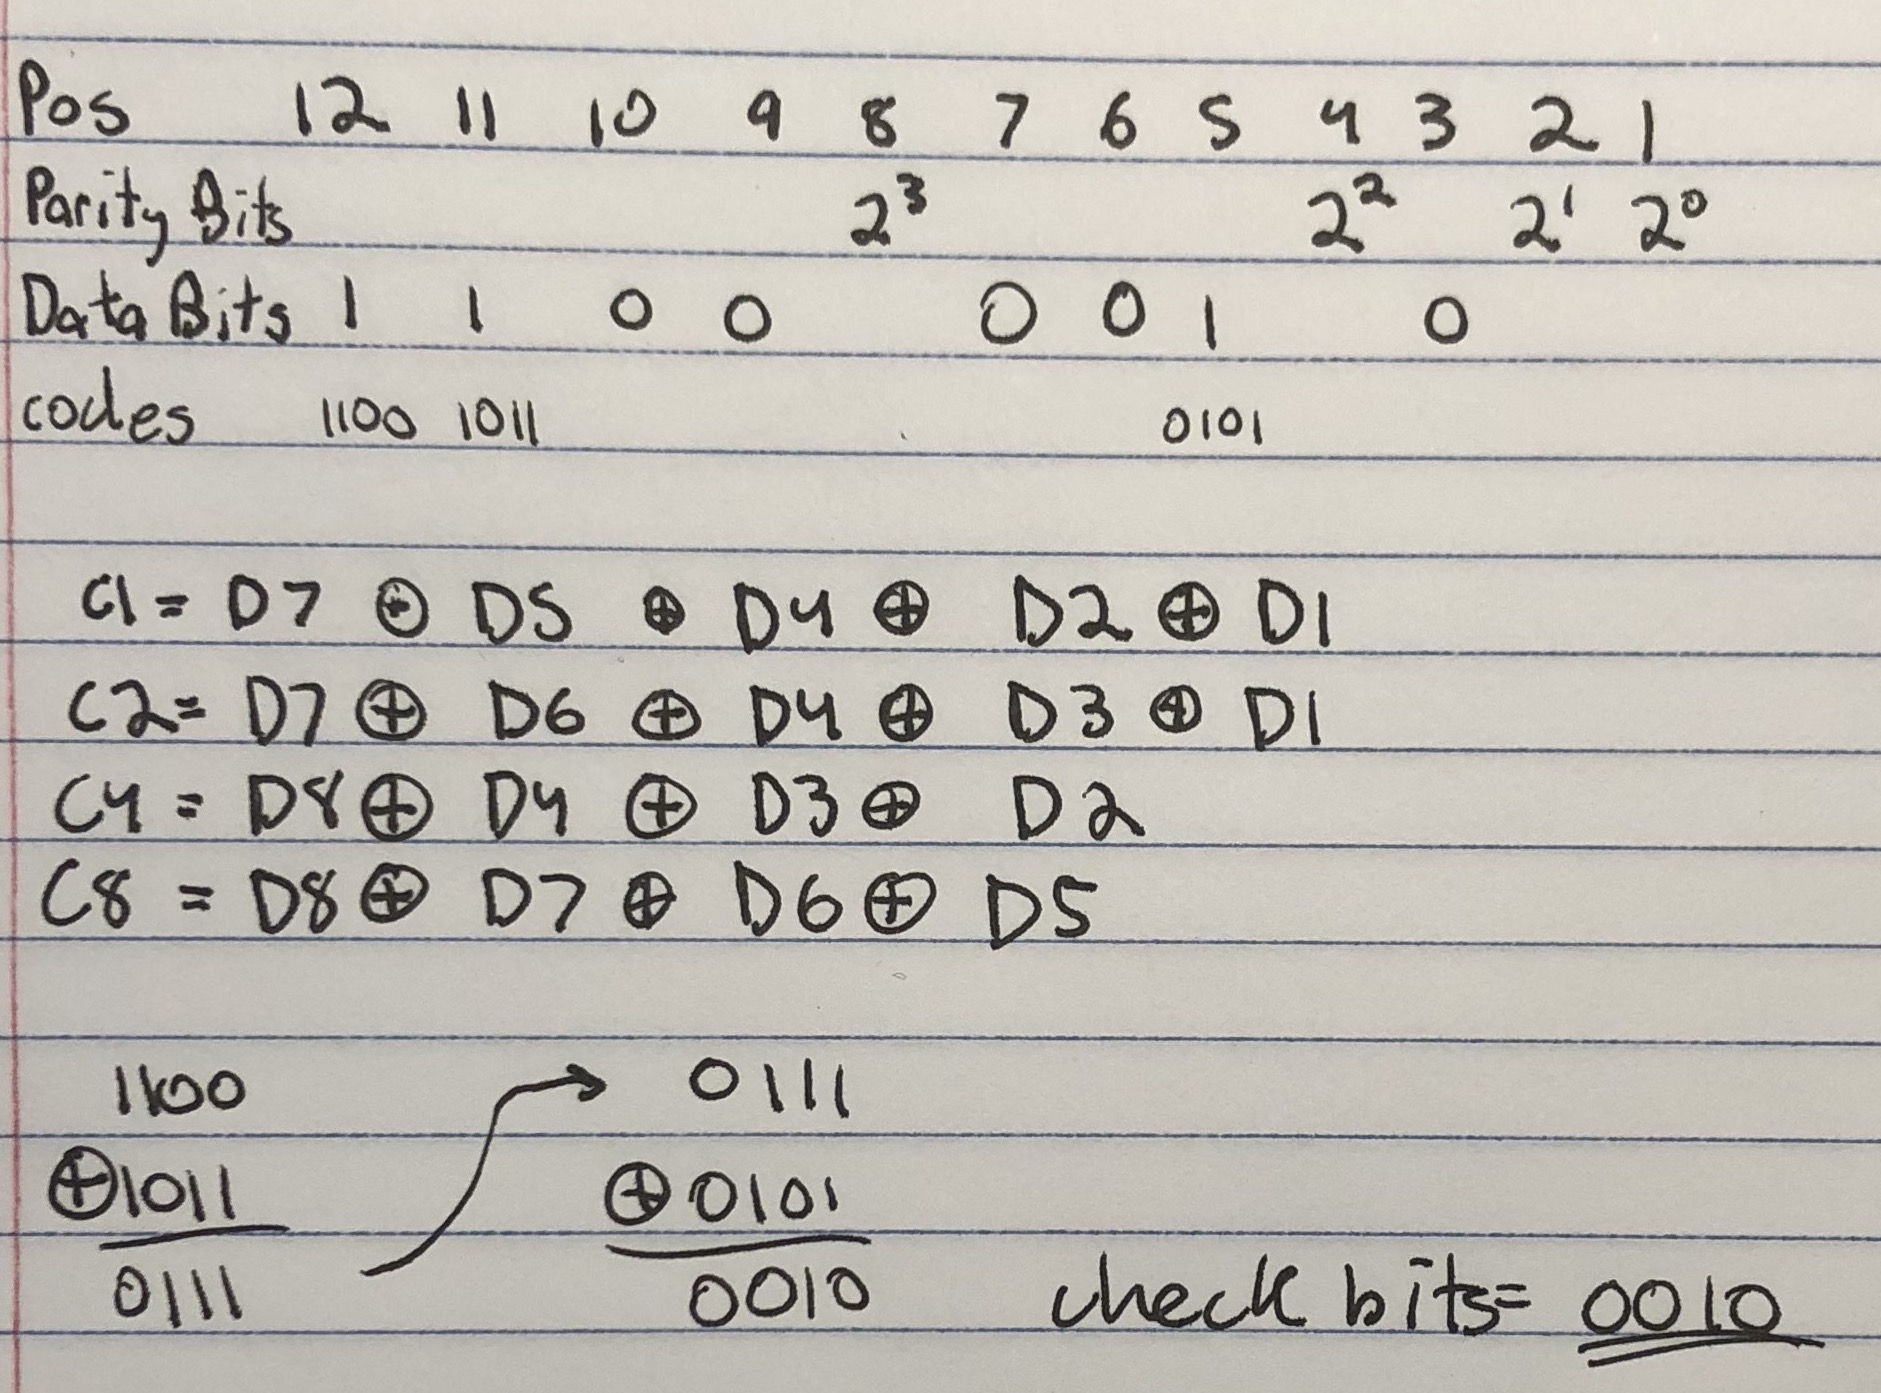 Pos 12 11 10 9 8 7 6 5 4 3 2 1
Parity Bits 2³ 2² 2¹ 2⁰
Data Bits 1 1 0 0 0 0 1 0
codes 1100 1011 0101
C1 = D7 ⊙ D5 ⊕ D4 ⊕ D2 ⊕ D1
C2 = D7 ⊕ D6 ⊕ D4 ⊕ D3 ⊕ D1
C4 = D8 ⊕ D4 ⊕ D3 ⊕ D2
C8 = D8 ⊕ D7 ⊕ D6 ⊕ D5
1100 → 0111
⊕1011 ⊕0101
0111 0010 check bits= 0010